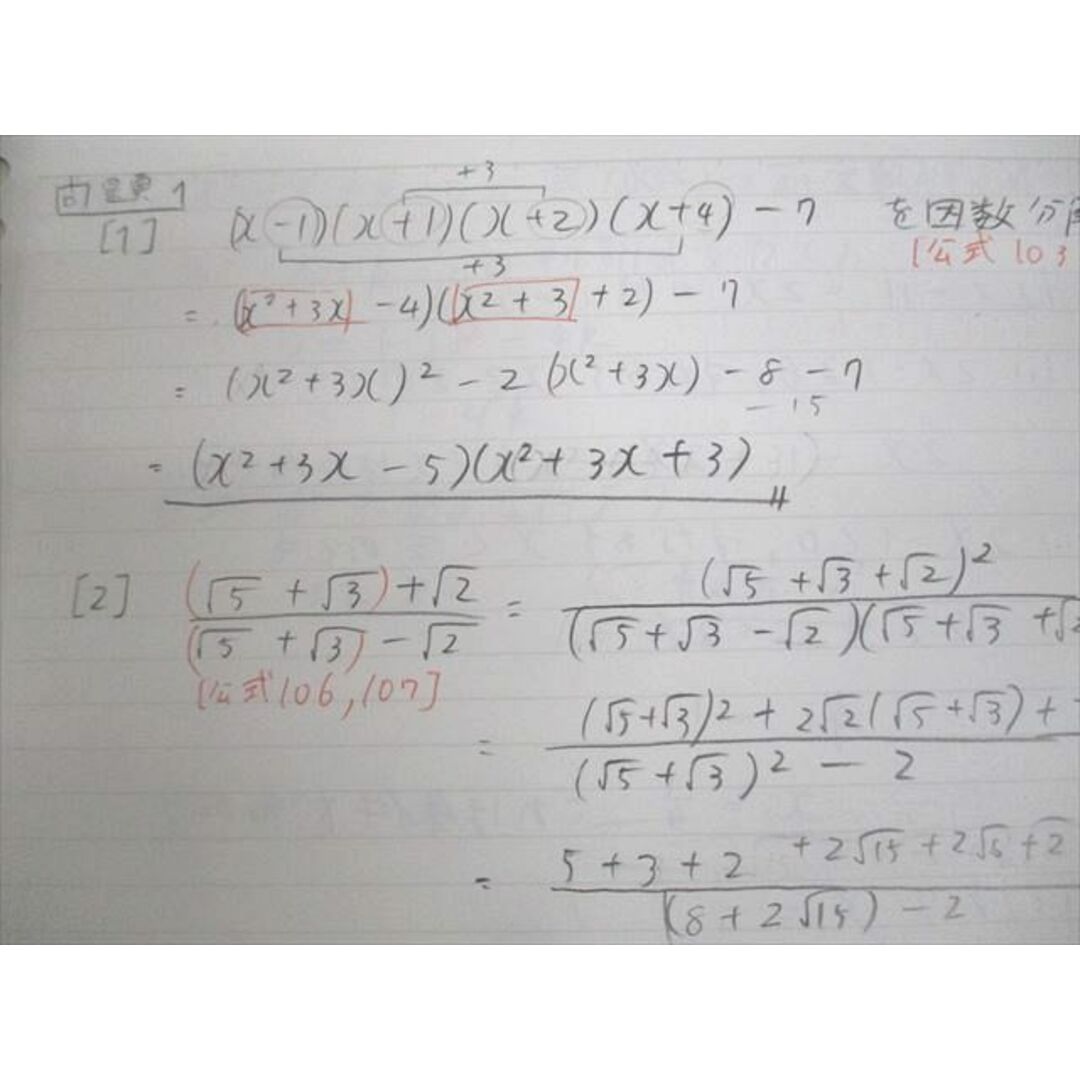 問題1
+3
[1] (x-1)(x+1)(x+2)(x+4)-7 を因数分解
+3
[公式103
= (x²+3x-4)(x²+3+2)-7
= (x²+3x)²-2(x²+3x)-8-7
-15
= (x²+3x-5)(x²+3x+3)
[2] (√5+√3)+√2 / (√5+√3)-√2 = (√5+√3+√2)² / (√5+√3-√2)(√5+√3+√2
[公式106,107]
= (√5+√3)²+2√2(√5+√3)+ / (√5+√3)²-2
= 5+3+2+2√15+2√5+√2 / (8+2√15)-2